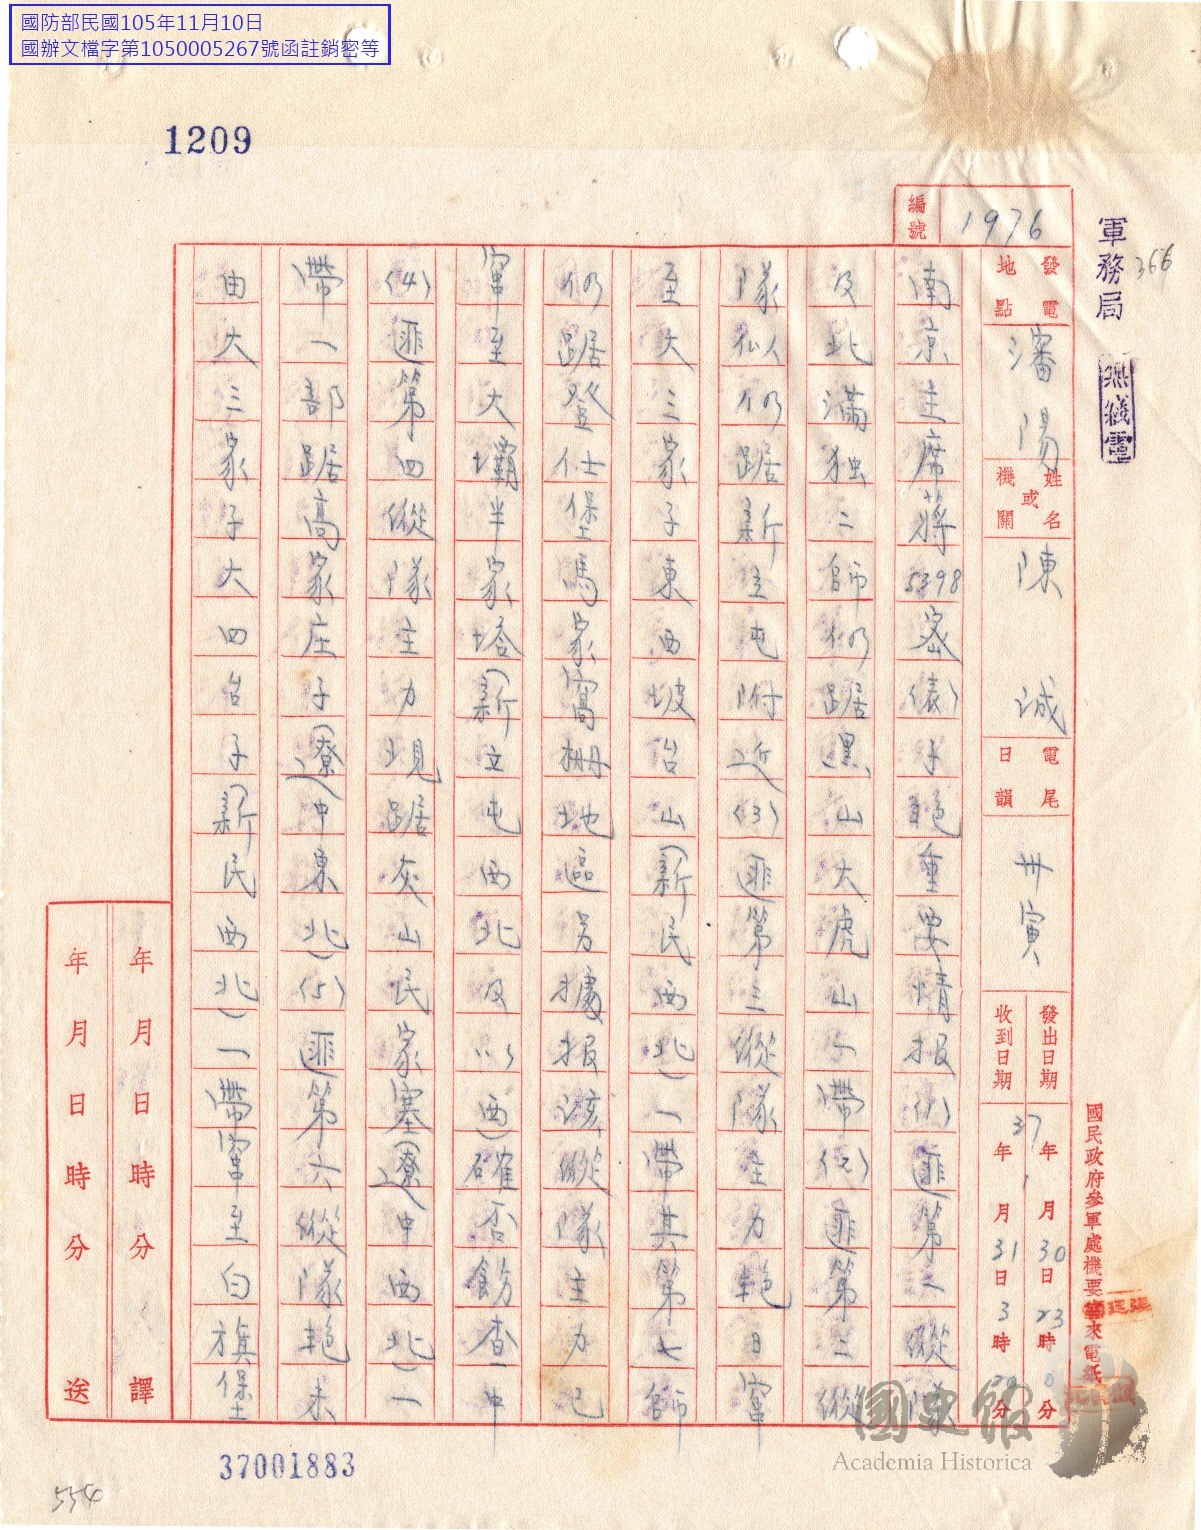 國防部民國105年11月10日
國辦文檔字第1050005267號函註銷密等
1209
軍務局
366
無線電
編號 1976
發電地點 瀋陽
姓名或機關 陳誠
電尾日韻 卅寅
發出日期 37年1月30日23時0分
收到日期 年月31日3時20分
國民政府參軍處機要室來電紙
南京主席蔣5398密(表)子艳重要情报(1)匪第一縱隊
及北滿独二師仍踞黑山大虎山一帶(2)匪第二縱
隊似仍踞新立屯附近(3)匪第三縱隊主力艳日窜
至大三家子東西坡台山(新民西北)一帶其第七師
仍踞登仕堡馬家窩棚地區另據报该縱隊主力已
窜至大壩半家塔(新立屯西北及〃西)確否飭查中
(4)匪第四縱隊主力現踞灰山民家塞(遼中西北)一
帶一部踞高家庄子(遼中東北)(5)匪第六縱隊艳未
由大三家子大四台子(新民西北)一帶窜至白旗堡
年月日時分譯
年月日時分送
37001883
554
國史館
Academia Historica